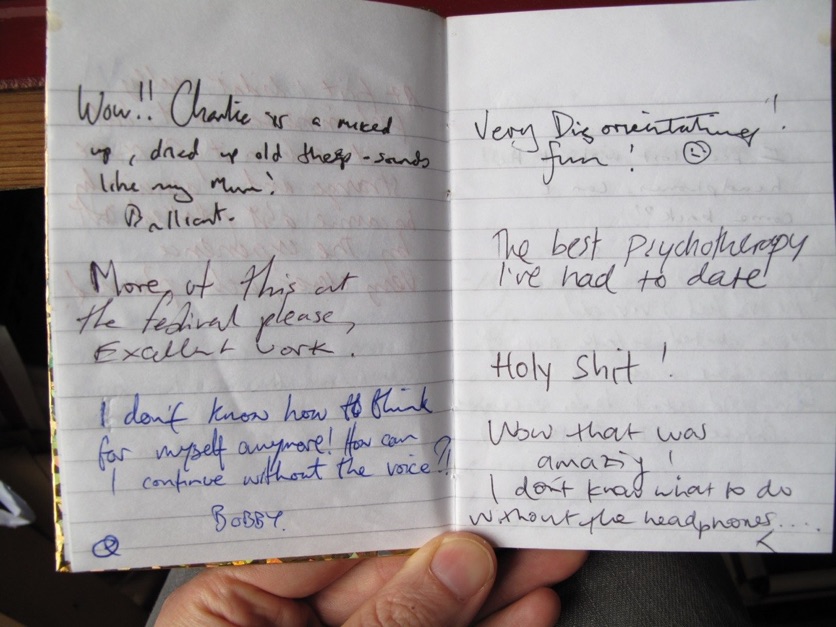 Wow!! Charlie is a mixed
up, dried up old - sounds
like my Mum!
Brilliant.
More of this at
the festival please,
Excellent work.
I don't know how to think
for myself anymore! How can
I continue without the voice?!
BOBBY.
Very Disorientating!
fun!
The best psychotherapy
I've had to date
Holy shit!
Wow that was
amazing!
I don't know what to do
without the headphones....